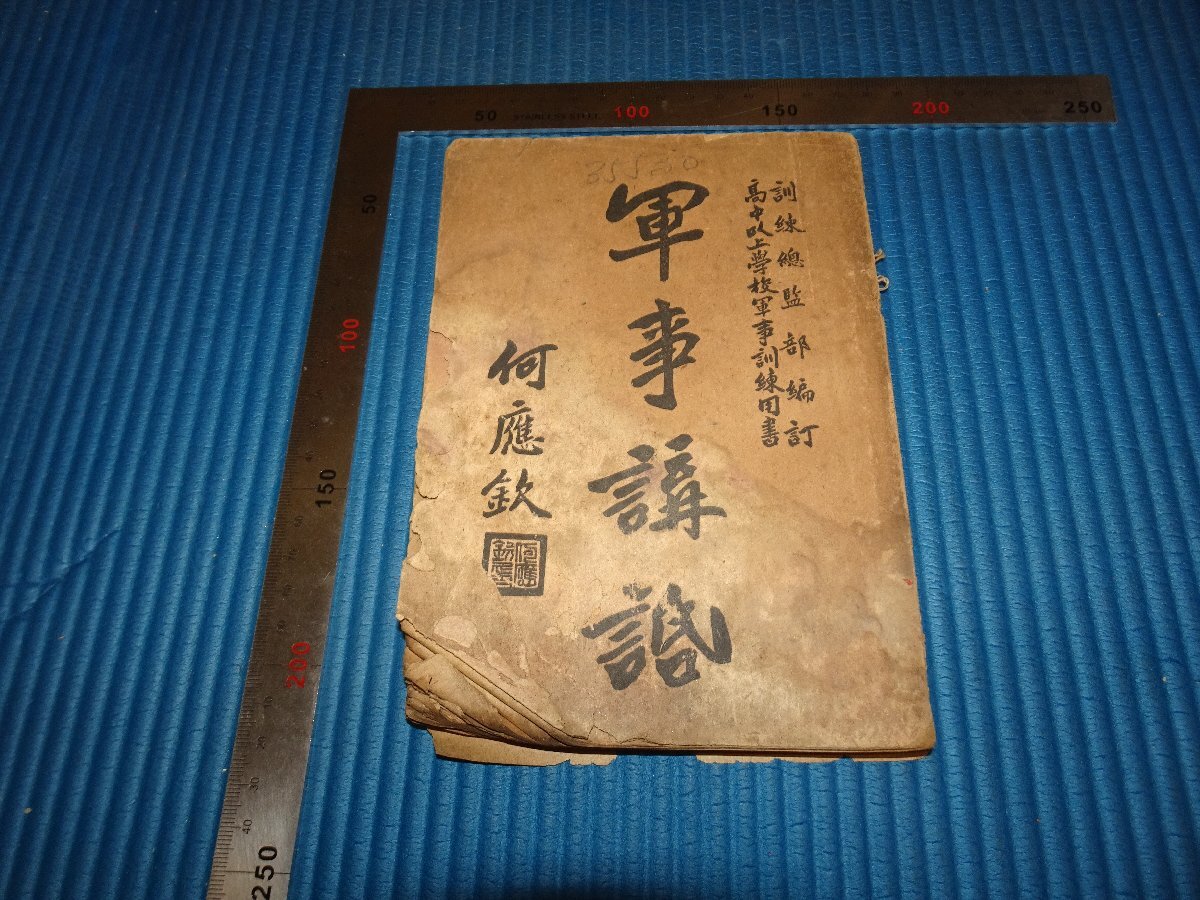 訓練總監部編訂
高中以上學校軍事訓練用書
軍事講話
何應欽
50 100 150 200 250
STAINLESS STEEL
50
100
150
200
250